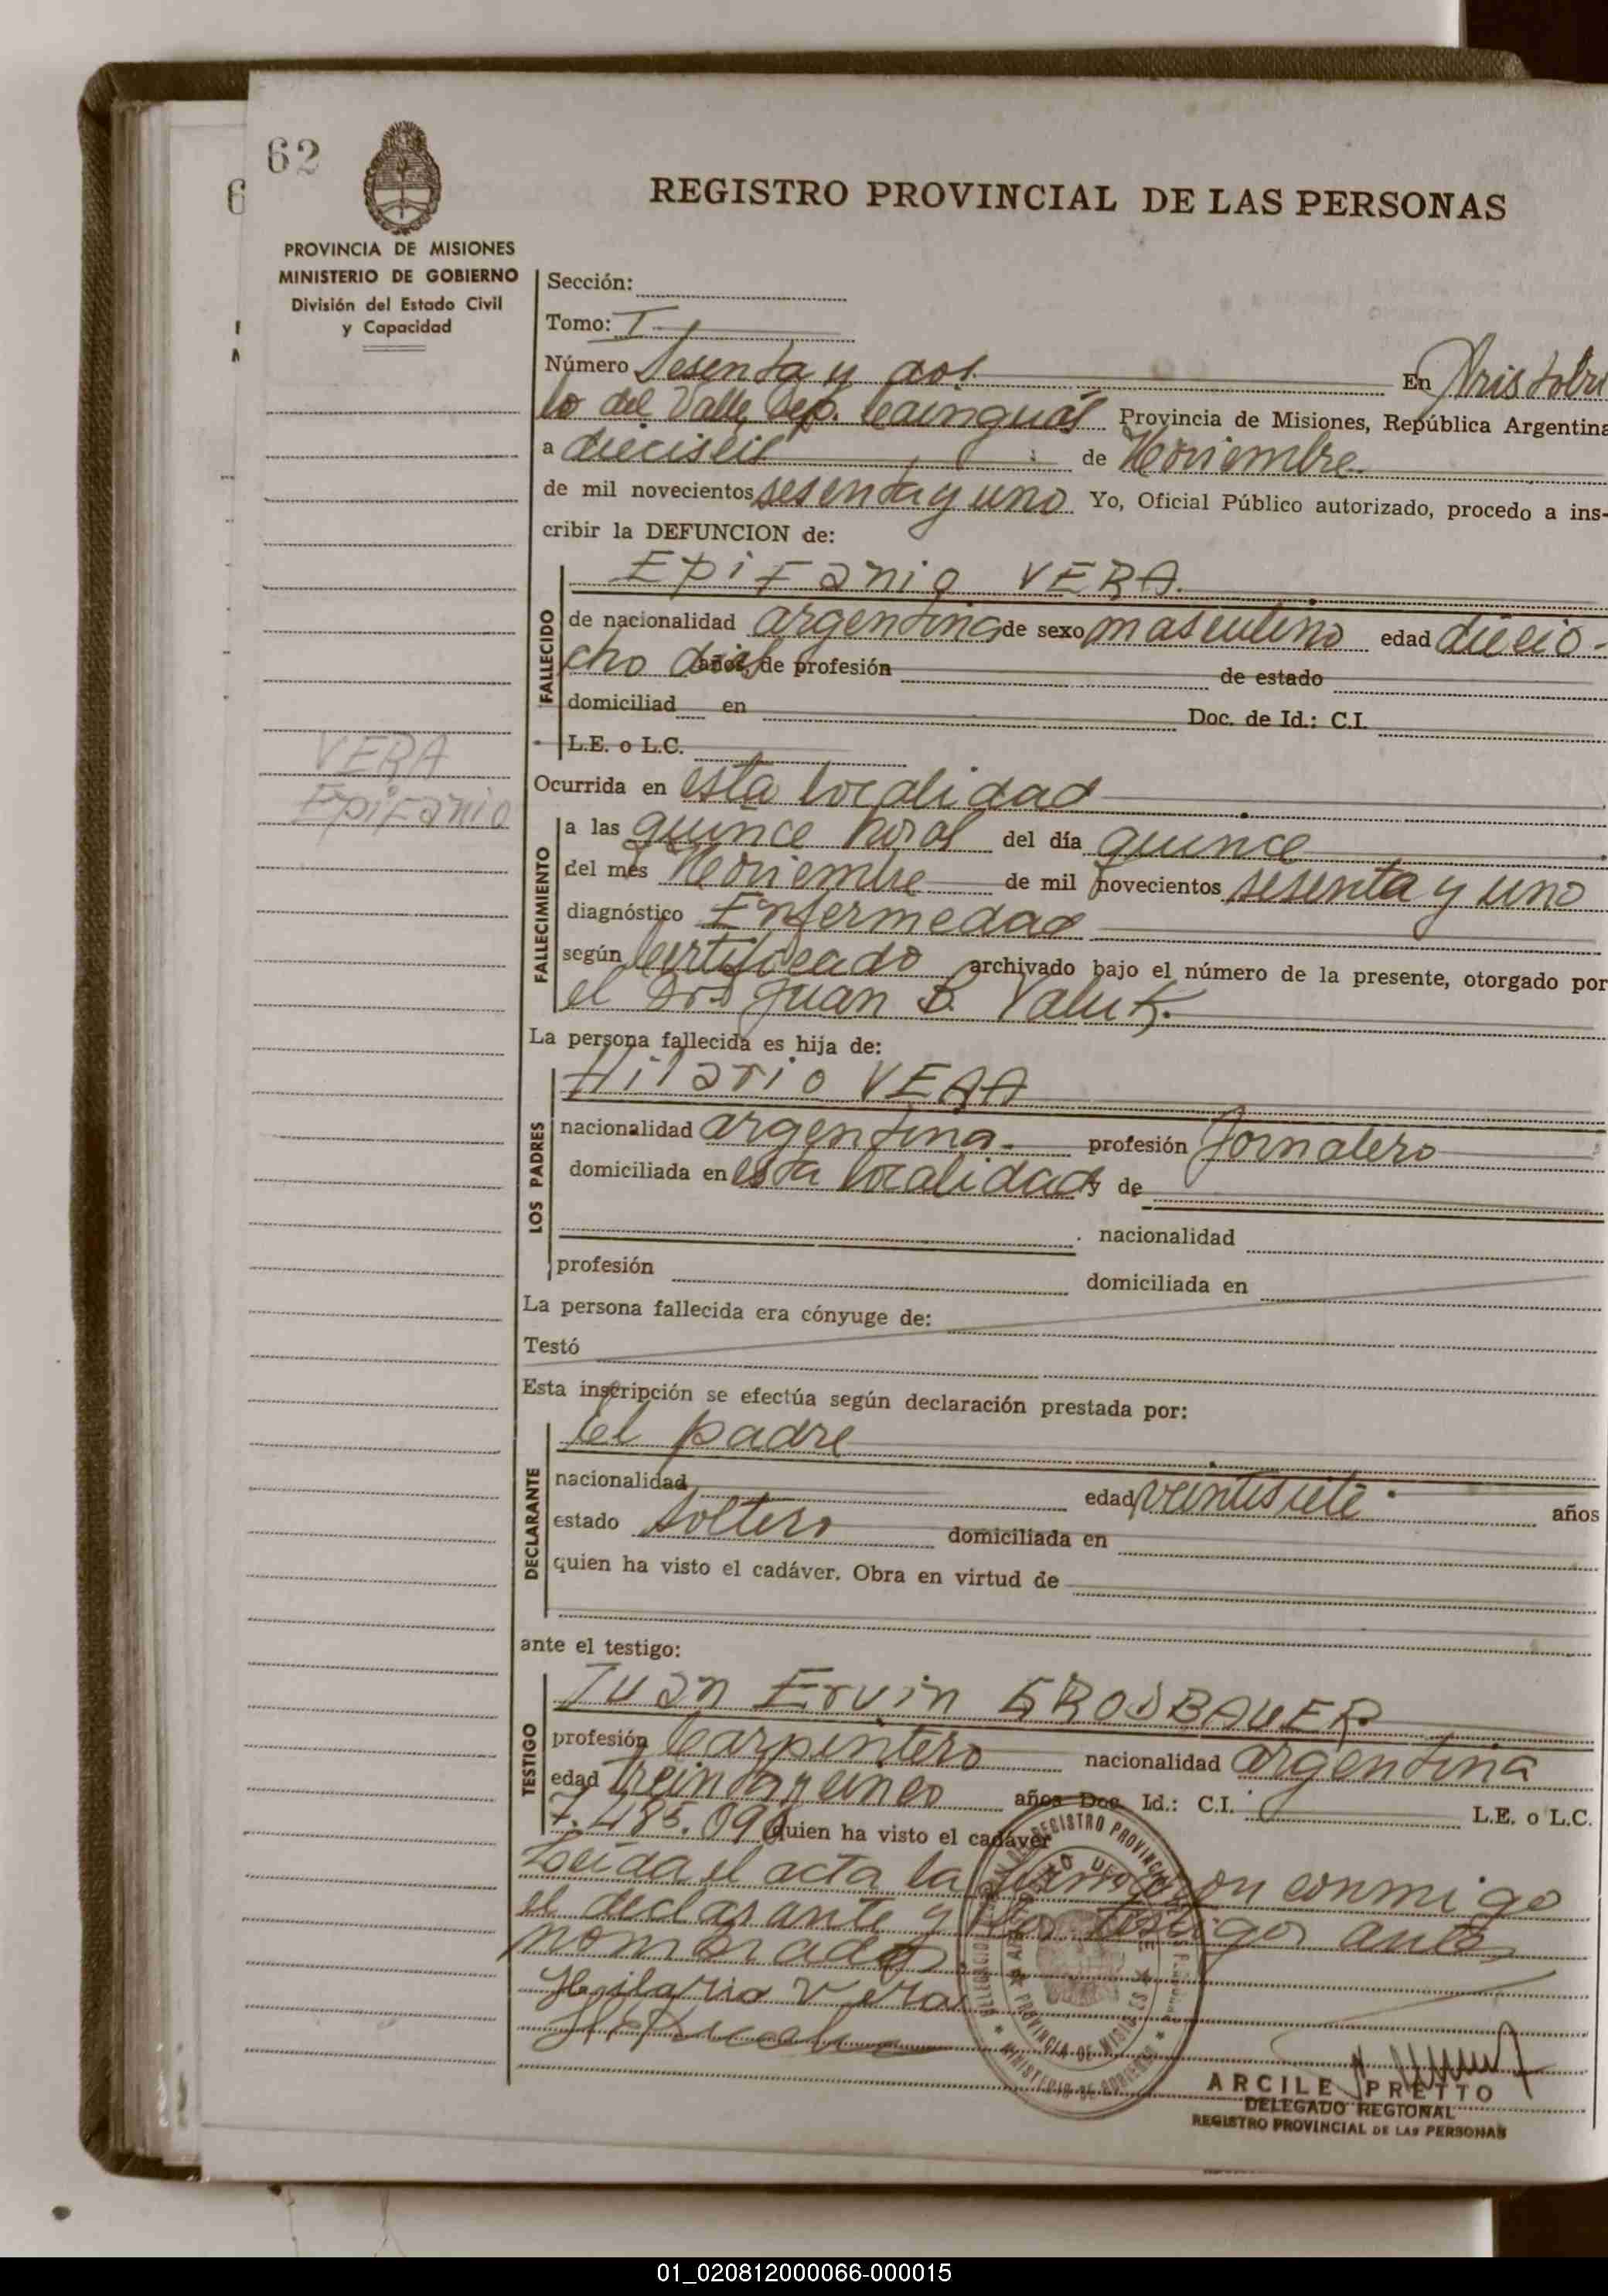 62
6
PROVINCIA DE MISIONES
MINISTERIO DE GOBIERNO
División del Estado Civil
y Capacidad
REGISTRO PROVINCIAL DE LAS PERSONAS
Sección:
Tomo: I
Número Sesenta y dos En Aristóbu
lo del Valle, Dep. Cainguás Provincia de Misiones, República Argentina
a dieciseis de Noviembre
de mil novecientos sesenta y uno Yo, Oficial Público autorizado, procedo a ins-
cribir la DEFUNCION de:
Epifanio VERA
FALLECIDO
de nacionalidad argentina de sexo masculino edad diecio-
cho dias años, de profesión de estado
domiciliad en Doc. de Id.: C.I.
L.E. o L.C.
VERA
Epifanio
Ocurrida en esta localidad
FALLECIMIENTO
a las quince horas del día quince
del mes Noviembre de mil novecientos sesenta y uno
diagnóstico Enfermedad
según Certificado archivado bajo el número de la presente, otorgado por
el Dr. Juan B. Valuk.
La persona fallecida es hija de:
LOS PADRES
Hilario VERA
nacionalidad argentina profesión Jornalero
domiciliada en esta localidad y de
nacionalidad
profesión domiciliada en
La persona fallecida era cónyuge de:
Testó
Esta inscripción se efectúa según declaración prestada por:
DECLARANTE
el padre
nacionalidad edad veintisiete años
estado soltero domiciliada en
quien ha visto el cadáver. Obra en virtud de
ante el testigo:
TESTIGO
Juan Ervin GROSBAUER
profesión Carpintero nacionalidad argentina
edad treintaycinco años Doc. Id.: C.I. L.E. o L.C.
7.485.09 quien ha visto el cadáver
Leída el acta la firmaron conmigo
el declarante y los testigos antes
nombrados.
Hilario Vera
REGISTRO PROVINCIAL
PROVINCIA DE MISIONES
MINISTERIO DE GOBIERNO
ARCILE PRETTO
DELEGADO REGIONAL
REGISTRO PROVINCIAL DE LAS PERSONAS
01_020812000066-000015